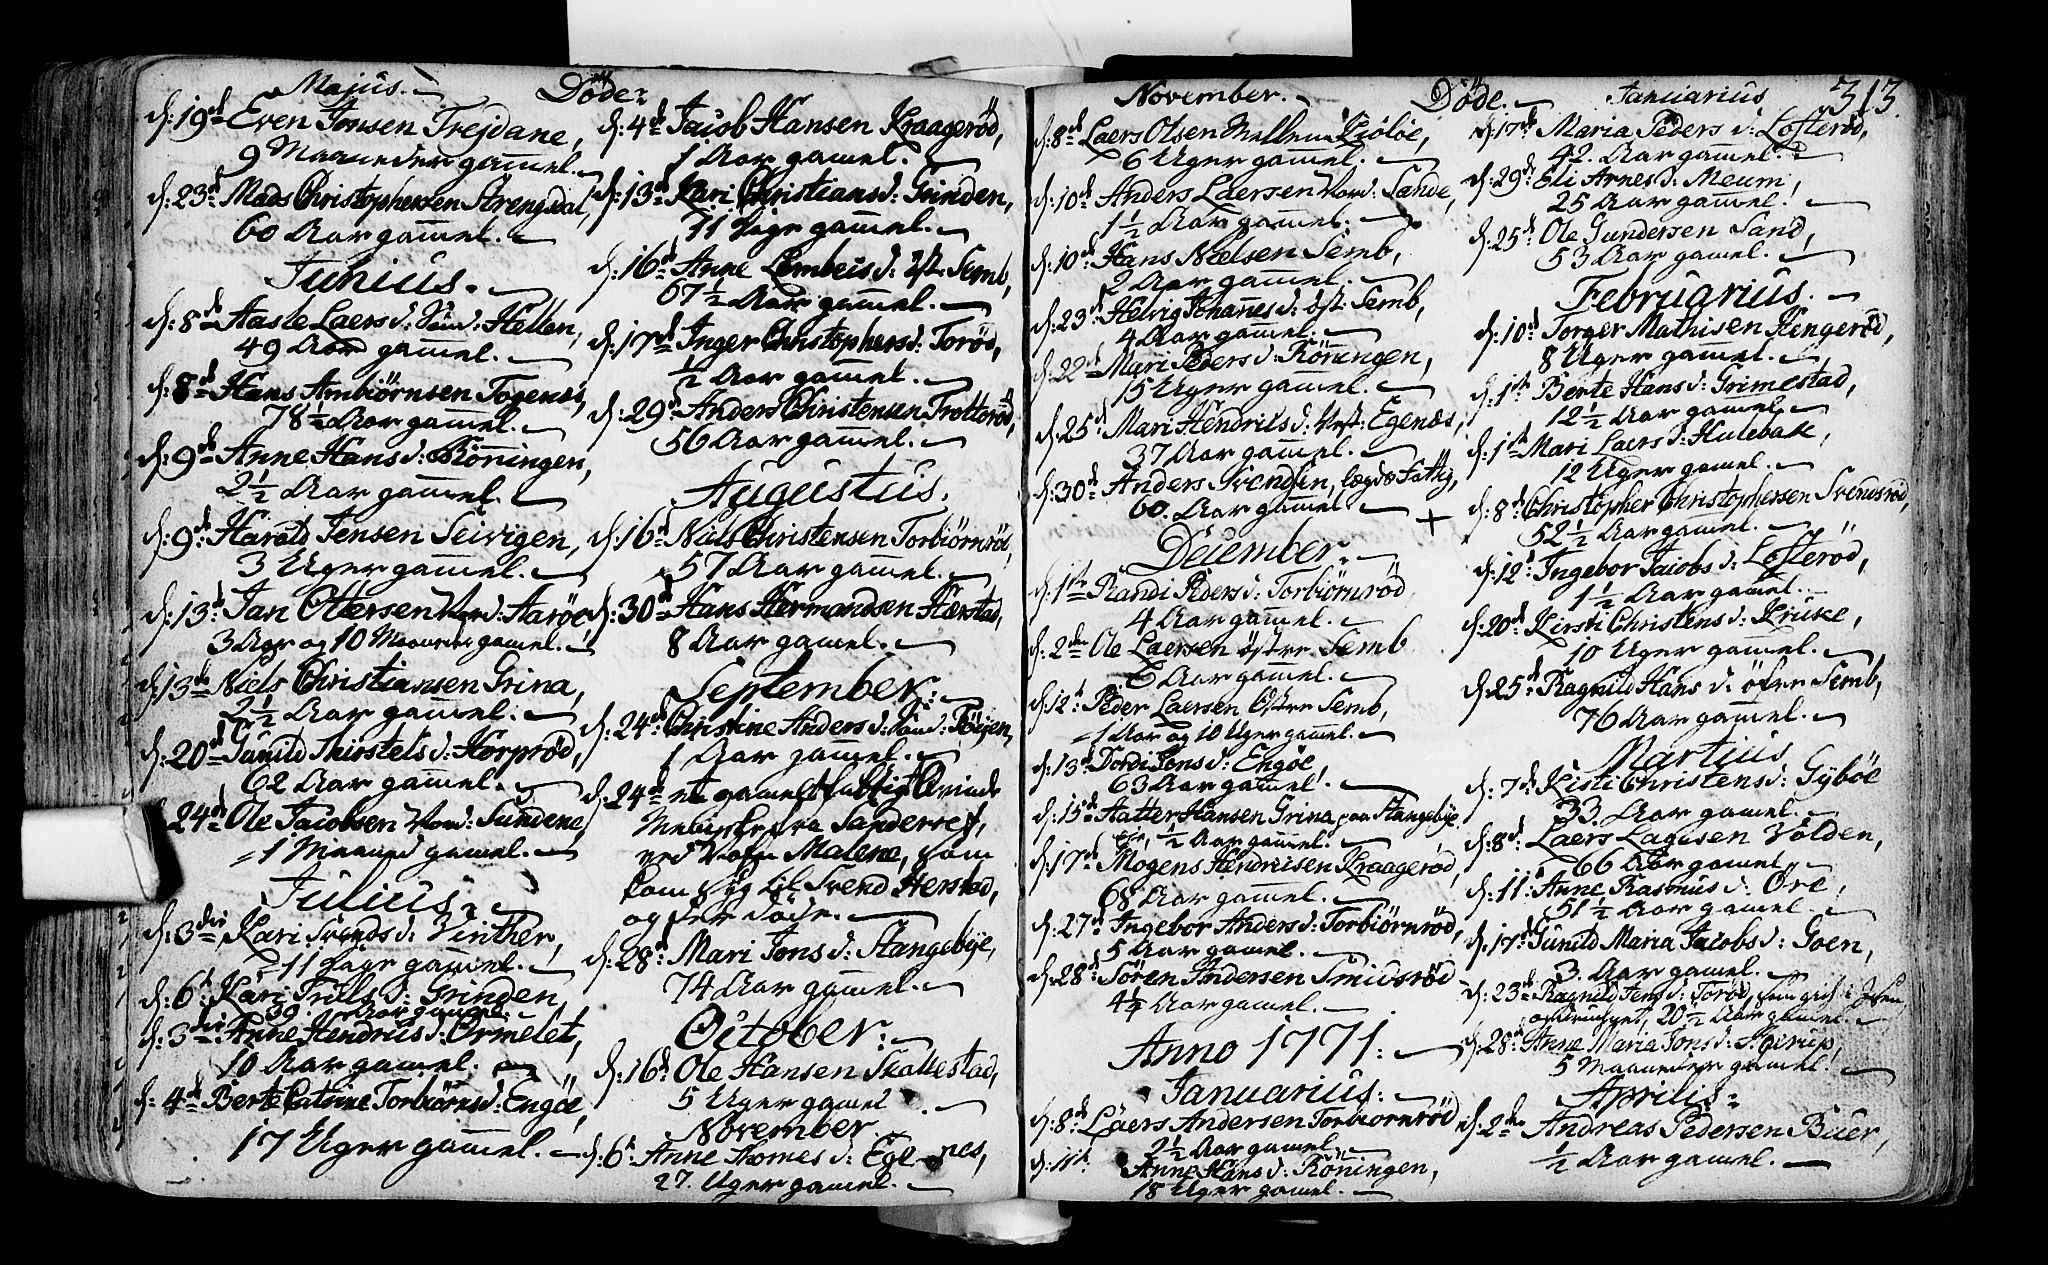 Majus.
Døde.
d: 19de Even Jonsen Trejdane,
9 Maaneder gammel.
d: 23de Mads Christophersen Strengsdal,
60 Aar gammel.
Junius.
d: 8de Aasle Laers d: Hellen,
49 Aar gammel.
d: 8de Hans Ambiørnsen Togenes,
78 ½ Aar gammel.
d: 9de Anne Hans d: Røningen,
2½ Aar gammel.
d: 9de Harald Jensen
3 Uger gammel.
d: 13de Jan Ottersen Aarøe
3 Aar og 10 Maaneder gammel.
d: 13de Niels Christiansen Grina,
2½ Aar gammel.
d: 20de Gunild Thorstels d: Horprød,
62 Aar gammel.
d: 24de Ole Jacobsen Sundene,
1 Maaned gammel.
Julius.
d: 3die Kari Svends d: Vinther,
11 Dage gammel.
d: 6te Kari Trills d: Grinden,
39 Aar gammel.
d: 3die Anne Hendrics d: Ormelet,
10 Aar gammel.
d: 4de Berte Catrine Torbiørns d: Engøe,
17 Uger gammel.
d: 4de Jacob Hansen Kraagerød,
1 Aar gammel.
d: 13de Kari Christians d: Grinden,
11 Dage gammel.
d: 16de Anne Lembecs d: Øst: Semb,
67½ Aar gammel.
d: 17de Inger Christophers d: Torød,
½ Aar gammel.
d: 29de Anders Christensen Trotterød,
56 Aar gammel.
Augustus.
d: 16de Niels Christensen Torbiørnrød,
57 Aar gammel.
d: 30de Hans Hermandsen Hærstad,
8 Aar gammel.
September.
d: 24de Christine Anders d: Bøgen,
1 Aar gammel.
d: 24de et gamelt fattigt Qvinde
Mennske fra Sanderrød,
ved Nafn Malene, som
kom syg til Svend Herstad,
og der døde.
d: 28de Mari Jons d: Stangebye,
74 Aar gammel.
October.
d: 16de Ole Hansen Skattestad,
5 Uger gamel.
November
d: 6te Anne Thomes d: Egenes,
27. Uger gamel.
November.
Døde.
Januarius
313.
d: 8de Laers Olsen Mellem Kiøløe,
6 Uger gammel.
d: 10de Anders Laersen Sande,
1½ Aar gammel.
d: 10de Hans Nielsen Semb,
2 Aar gammel.
d: 23de Helvig Johannes d: Øst: Semb,
4 Aar gammel.
d: 22de Mari Peders d: Røningen,
15 Uger gammel.
d: 25de Mari Hendrics d: Vest: Egenæs,
37 Aar gammel.
d: 30de Anders Svendsen, lægds Fattig,
60. Aar gammel.
December.
d: 1ste Randi Peders d: Torbiørnrød
4 Aar gammel.
d: 2den Ole Laersen østre Semb
6 Aar gammel.
d: 12te Peder Laersen Østre Semb,
1 Aar og 10 Uger gammel.
d: 13de Dordi Jens d: Engøe,
63 Aar gammel.
d: 15de Hatter Hansen Grina paa Stangebye
½ Aar gammel.
d: 17de Mogens Hendricsen Kraagerød,
68 Aar gammel.
d: 27de Ingebor Anders d: Torbiørnrød,
5 Aar gammel.
d: 28de Søren Andersen Smidsrød
4½ Aar gammel.
Anno 1771.
Januarius.
d: 8de Laers Andersen Torbiørnrød,
2½ Aar gammel.
d: 11te Anne Hans d: Røningen,
18 Uger gamel.
d: 17de Maria Peders d: Lofterød,
42. Aar gammel.
d: 29de Eli Arnes d: Meum,
25 Aar gammel.
d: 25de Ole Gundersen Sand,
53 Aar gamel.
Februarius.
d: 10de Torger Mathisen Hengerød,
8 Uger gammel.
d: 1ste Berte Hans d: Grimestad,
12½ Aar gammel.
d: 1ste Mari Laers d: Hulebak,
12 Uger gamel.
d: 8de Christopher Christophersen Svendsrød,
52½ Aar gammel.
d: 12te Ingebor Jacobs d: Lofterød,
1½ Aar gammel.
d: 20de Kirsti Christens d: Kruke,
10 Uger gammel.
d: 25de Ragnild Hans d: øfre Semb,
76 Aar gammel.
Martius
d: 7de Kisti Christens d: Gybøe
33. Aar gamel.
d: 8de Laers Lagesen Volden,
66 Aar gamel.
d: 11te Anne Rasmus d: Øre,
51½ Aar gamel.
d: 17de Gunild Maria Jacobs d: Goen,
3. Aar gamel.
d: 23de Ragnild Jens d: Torød, som
20½ Aar gamel.
d: 28de Anne Maria Jons d: Agerup,
5 Maaneder gamel.
Aprilis.
d: 2den Andreas Pedersen Buer,
½ Aar gamel.